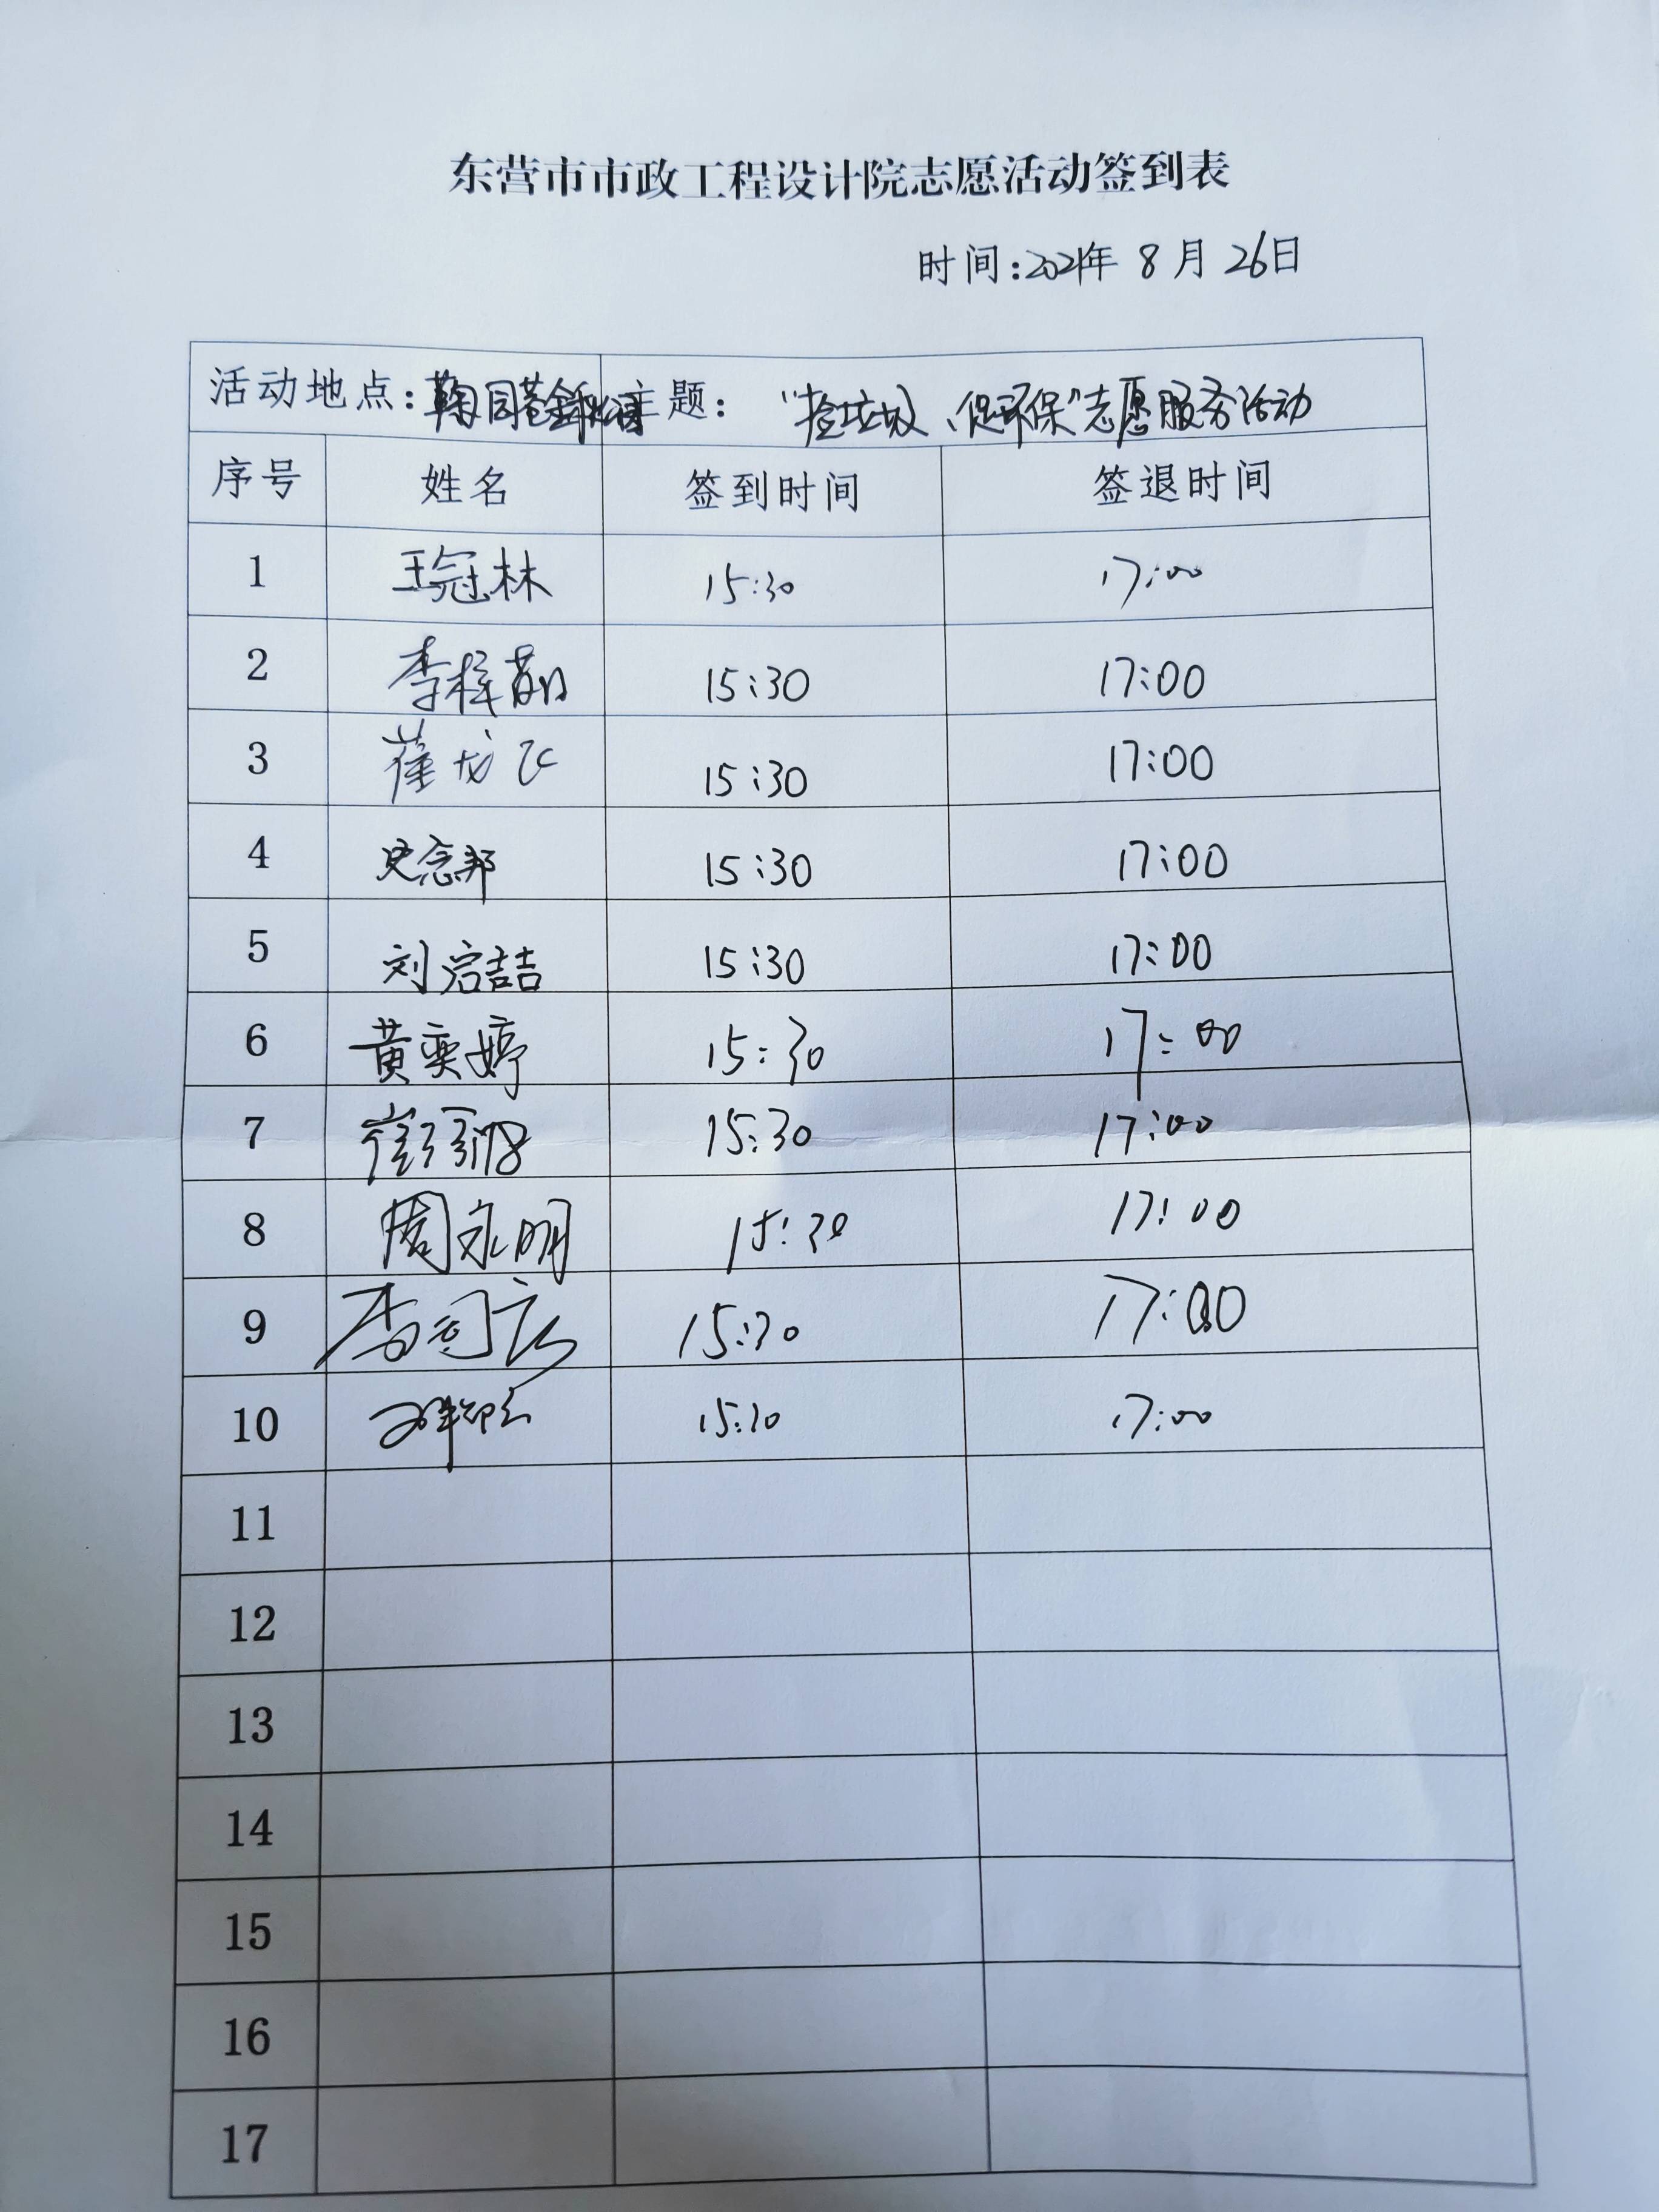 东营市市政工程设计院志愿活动签到表
时间:2021年 8 月 26日
活动地点: 主题: “捡垃圾、促环保”志愿服务活动
序号 姓名 签到时间 签退时间
1 王冠林 15:30 17:00
2 李梓萌 15:30 17:00
3 崔龙飞 15:30 17:00
4 史念邦 15:30 17:00
5 刘启喆 15:30 17:00
6 黄奕婷 15:30 17:00
7 15:30 17:00
8 周永明 15:30 17:00
9 15:30 17:00
10 15:30 17:00
11
12
13
14
15
16
17